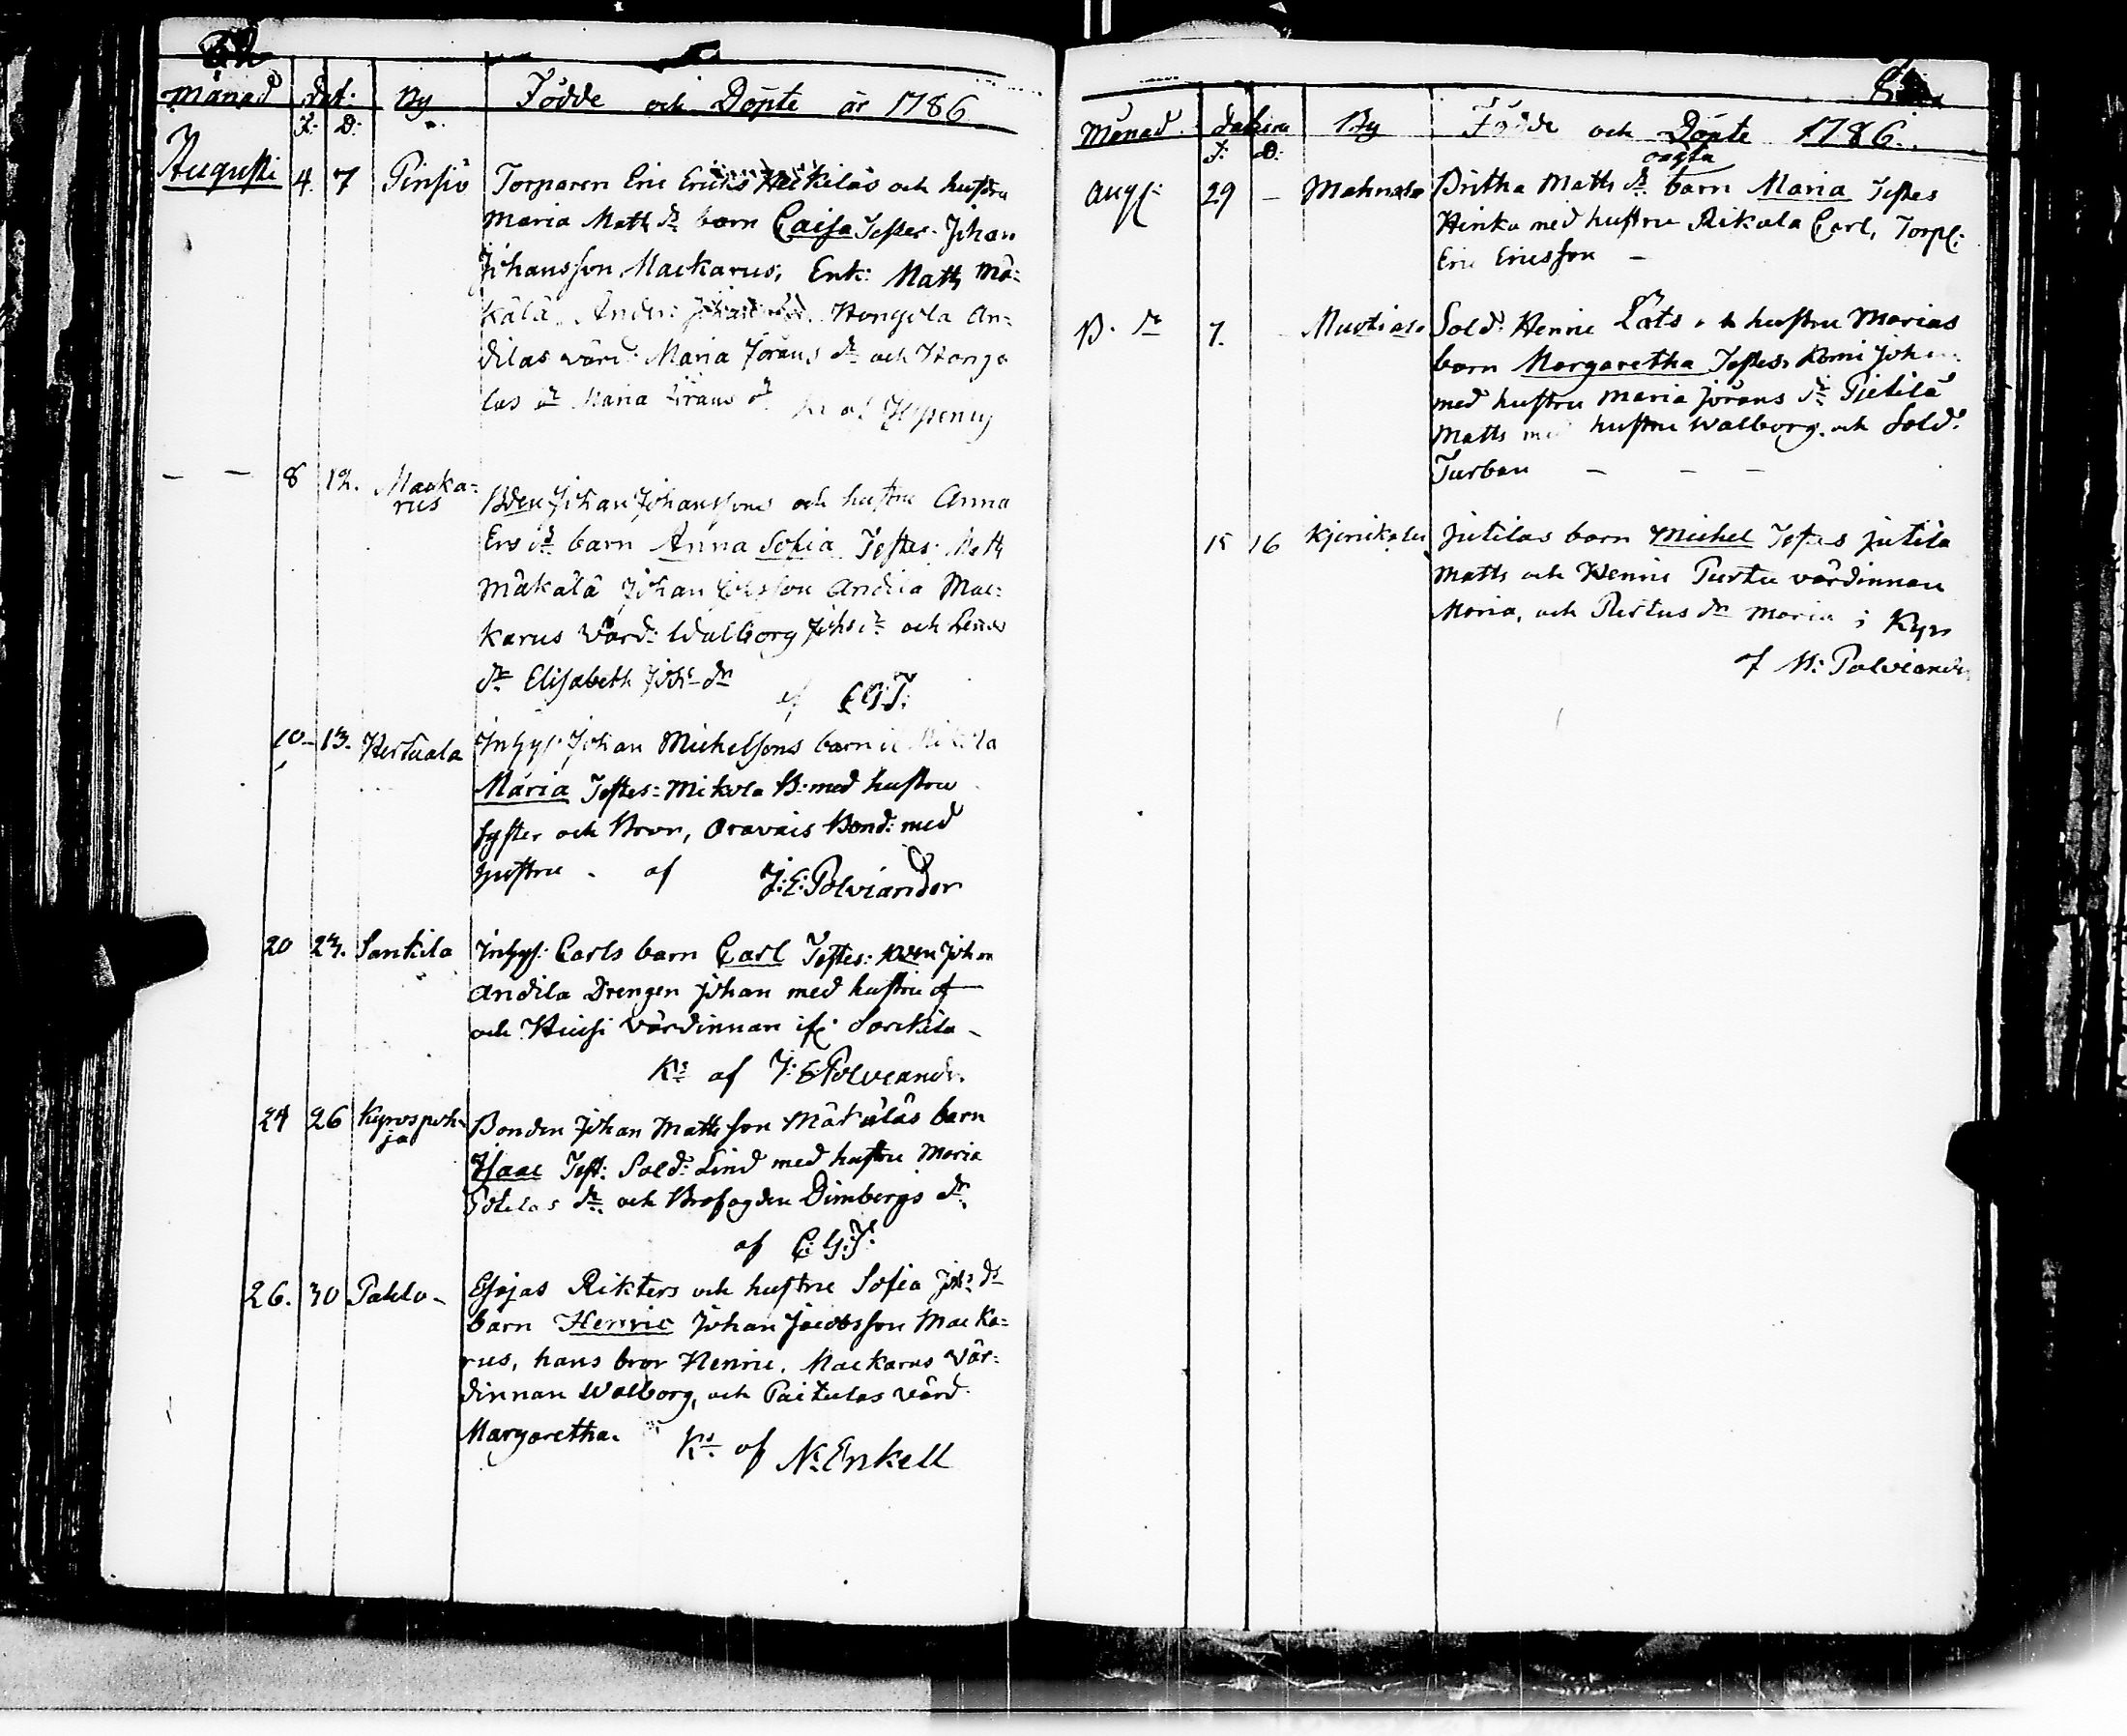 Månad Dat: By Födde och Döpte år 1786
F: D:
Augusti 4. 7 Pinsiö Torparen Eric Erics Heikiläs och hustru
Maria Matts dr barn Caisa Testes Johan
Johansson Mackarus, Enk: Matts Mä-
kälä, Hongola An-
dilas värd: Maria Jörans dr och Hongo
las dr Maria Jörans dr
— — 8 12. Macka-
rus
Bden Johan Johanssons och hustru Anna
Ers dr barn Anna Sofia Testes: Matts
Mäkälä Johan Andila Mac-
karus Värd: Walborg Johs dr och
dr Elisabeth Johs dr
af C.G.T.
10 13. Hertuala Inhys: Johan Michelssons barn
Maria Testes: Mikola B: med hustru
syster och Bror, Oravais Bond: med
hustru. af J:E:Polviander
20 23. Sankila Inhys: Carls barn Carl Testes: Bden Johan
Andila Drengen Johan med hustru
och Huisi värdinnan
Ks af J:E:Polviand:
24 26 Kyrospoh-
ja
Bonden Johan Mattsson Mäkäläs barn
Isaac Test: Sold: Lind med hustru Maria
dr och Brofogden Dimbergs dr
af C:G:T:
26. 30 Pahlo- Esajas Rikters och hustru Sofia Johs dr
barn Henric Johan Jacobsson Macka-
rus, hans bror Henric, Mackarus Vär-
dinnan Walborg, och Paitulas värd
Margaretha. Ks af N: Enkell
Månad Datum By Födde och Döpte 1786.
F: D:
oägta
Aug: 29 — Mahnala Britha Matts dr barn Maria Testes
Hinku med hustru Rikala Carl, Torp:
Eric Ericsson —
7. Sold: Henric Lots hustru Marias
barn Margaretha Testes: Komi Joh
med hustru Maria Jörans dr Pietilä
Matts med hustru Walborg och Sold:
Turban — — —
15 16 Jutilas barn Michel Testes Jutila
Matts och Henric Purtu värdinnan
Maria, och dr Maria i Kyro
af N: Polviander